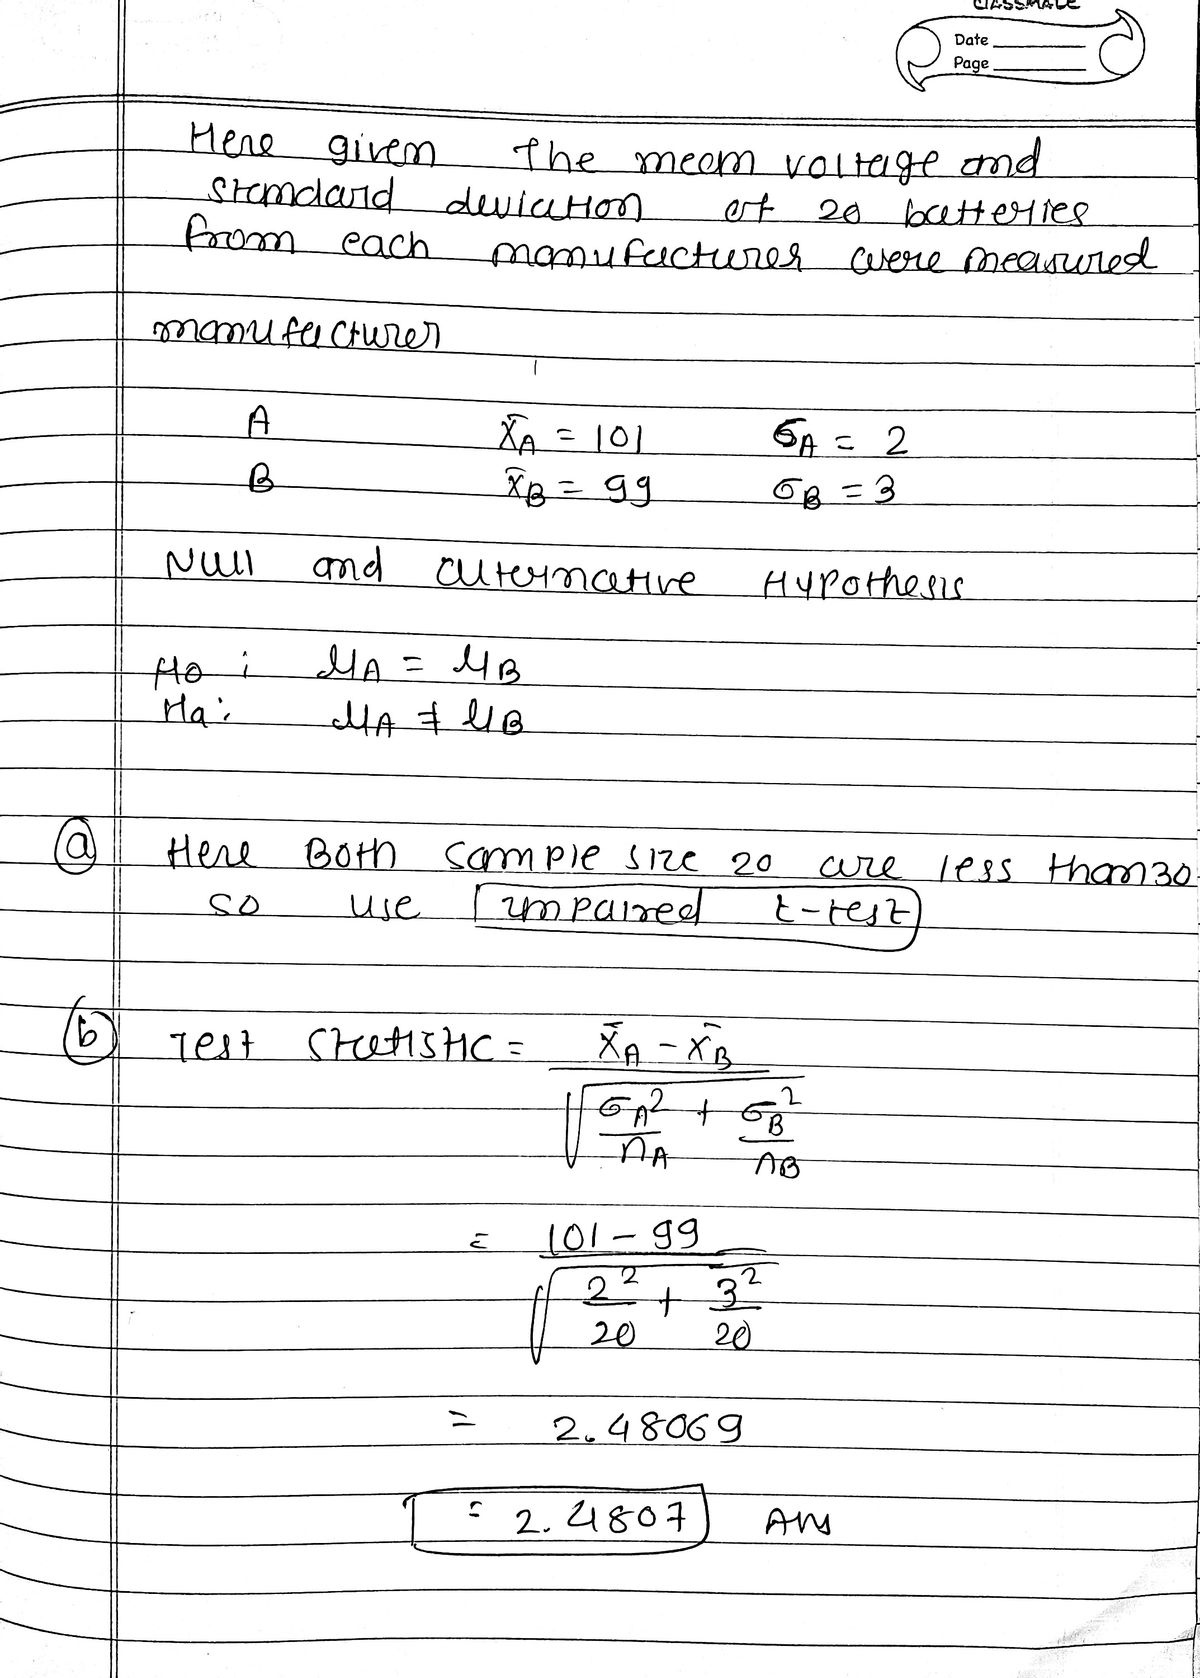 classmate
Date
Page
Here given the mean voltage and
standard deviation of 20 batteries
from each manufacturer were measured
manufacturer
A x̄A = 101 σA = 2
B x̄B = 99 σB = 3
Null and alternative Hypothesis
Ho : μA = μB
Ha : μA ≠ μB
(a) Here Both sample size 20 are less than 30
so use unpaired t-test
(b) Test statistic = x̄A - x̄B
√ σA² + σB²
nA nB
= 101 - 99
√ 2² + 3²
20 20
= 2.48069
= 2.4807 Ans